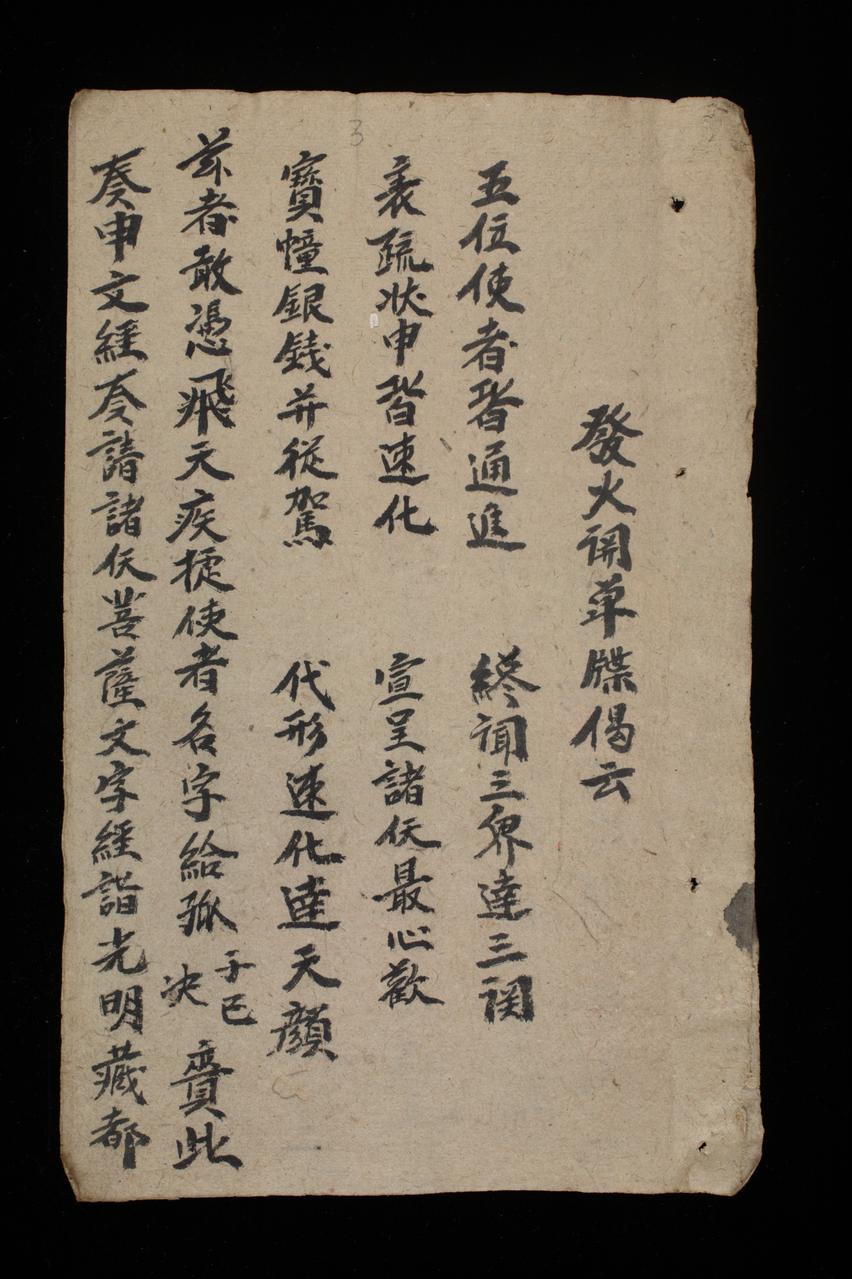 發火開草牒偈云
五位使者皆通進 終聞三界達三関
表疏狀申皆速化 宣呈諸仸最心歡
寶幢銀錢并從駕 代形速化達天顏
茲者敢憑飛天疾捷使者名字給孤 子巳決 賫此
奏申文經奏請諸仸菩薩文字經詣光明藏都
3